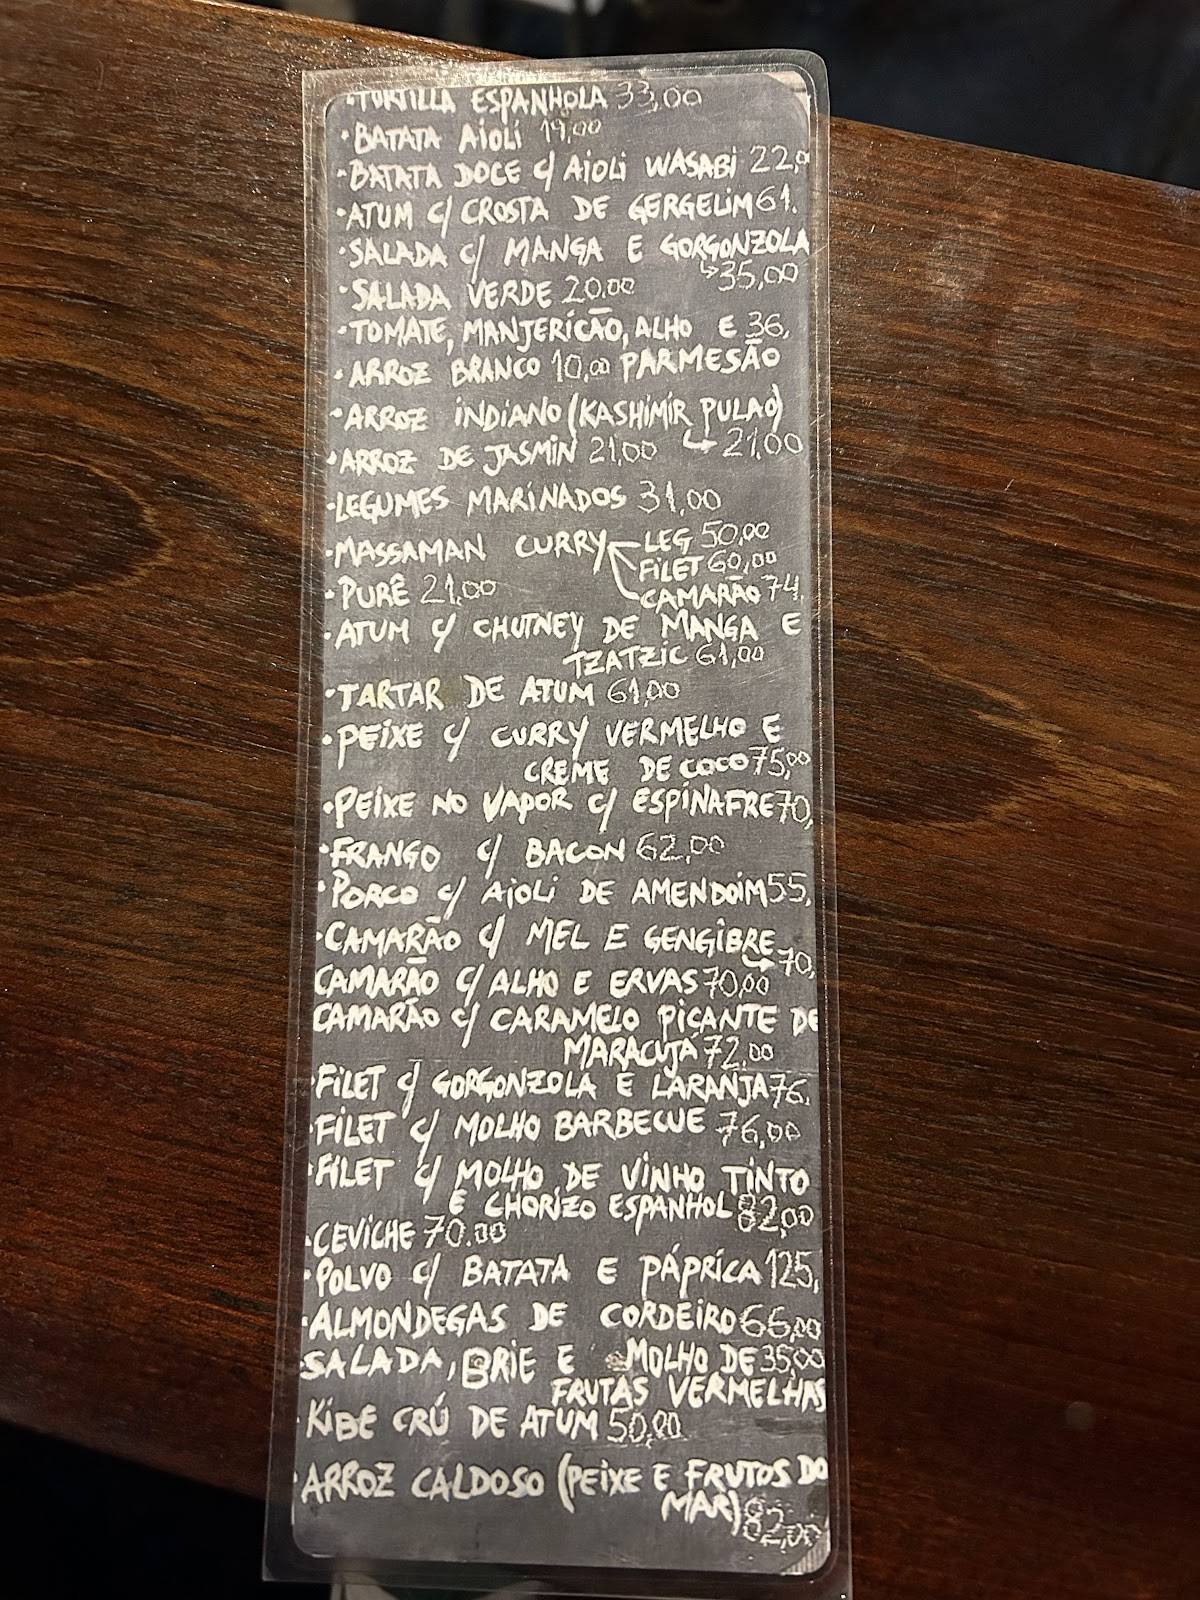 ·TORTILLA ESPANHOLA 33,00
·BATATA AIOLI 19,00
·BATATA DOCE C/ AIOLI WASABI 22,0
·ATUM C/ CROSTA DE GERGELIM 61.
·SALADA C/ MANGA E GORGONZOLA
↳35,00
·SALADA VERDE 20.00
·TOMATE, MANJERICÃO, ALHO E 36,
·ARROZ BRANCO 10,00 PARMESÃO
·ARROZ INDIANO (KASHIMIR PULAO)
·ARROZ DE JASMIN 21,00 ↳ 21,00
·LEGUMES MARINADOS 31,00
·MASSAMAN CURRY LEG 50,00
FILET 60,00
·PURÊ 21,00 CAMARÃO 74,
·ATUM C/ CHUTNEY DE MANGA E
TZATZIC 61,00
·TARTAR DE ATUM 61,00
·PEIXE C/ CURRY VERMELHO E
CREME DE COCO 75,00
·PEIXE NO VAPOR C/ ESPINAFRE 70,
·FRANGO C/ BACON 62,00
·PORCO C/ AIOLI DE AMENDOIM 55,
·CAMARÃO C/ MEL E GENGIBRE
↳70,
CAMARÃO C/ ALHO E ERVAS 70,00
CAMARÃO C/ CARAMELO PICANTE DE
MARACUJÁ 72,00
·FILET C/ GORGONZOLA E LARANJA 76,
·FILET C/ MOLHO BARBECUE 76,00
·FILET C/ MOLHO DE VINHO TINTO
E CHORIZO ESPANHOL 82,00
·CEVICHE 70.00
·POLVO C/ BATATA E PÁPRICA 125,
·ALMONDEGAS DE CORDEIRO 66,00
·SALADA, BRIE E MOLHO DE 35,00
FRUTAS VERMELHAS
·KIBE CRÚ DE ATUM 50,00
·ARROZ CALDOSO (PEIXE E FRUTOS DO
MAR) 82,00